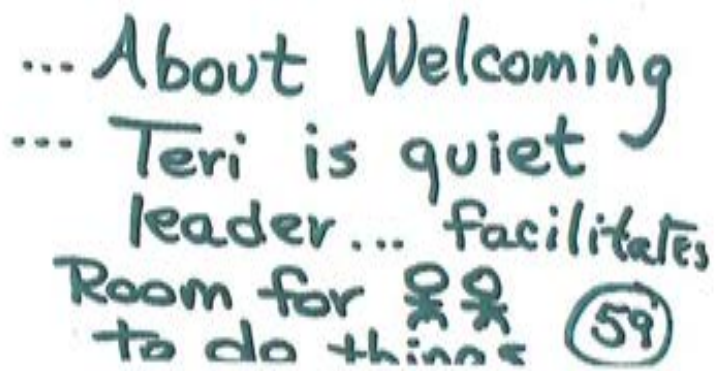 ... About Welcoming
... Teri is quiet
leader... facilitates
Room for
to do things
59